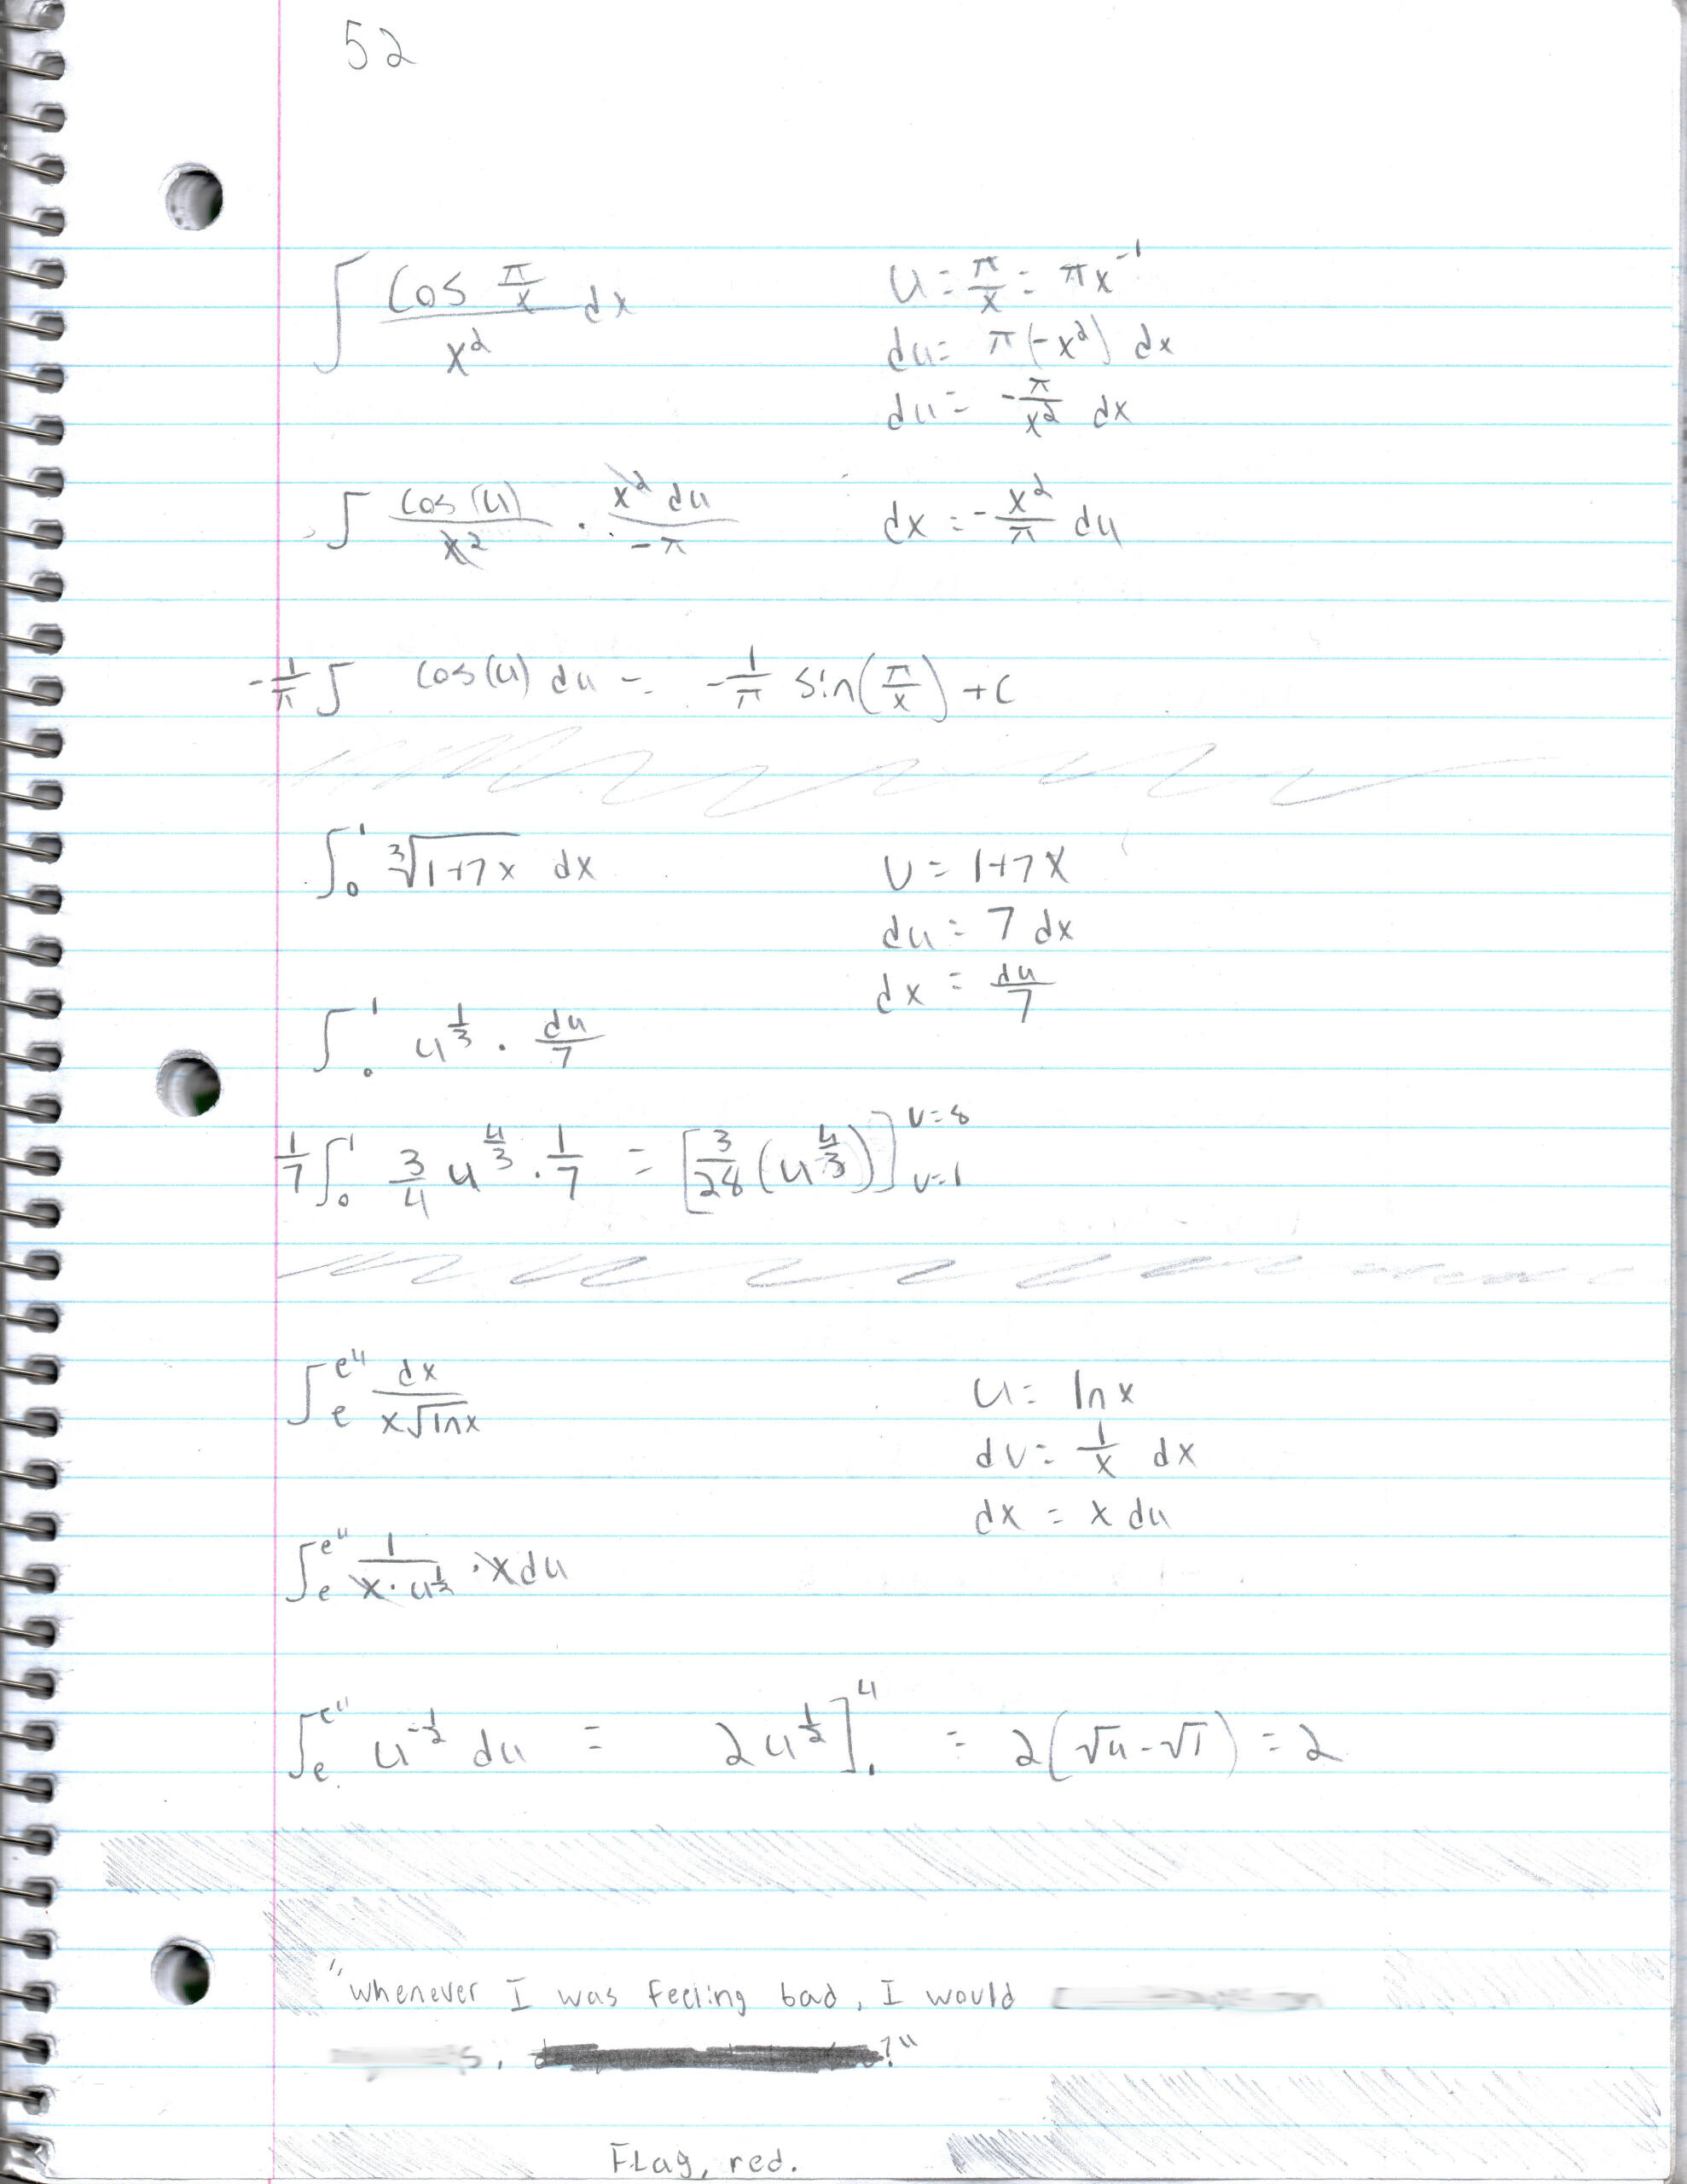 52
∫ cos π/x / x² dx    u = π/x = πx⁻¹
du = π(-x²) dx
du = -π/x² dx
∫ cos(u)/x² · x² du/-π    dx = -x²/π du
-1/π ∫ cos(u) du = -1/π sin(π/x) + C
∫₀¹ ³√(1+7x) dx    u = 1+7x
du = 7 dx
dx = du/7
∫₀¹ u^(1/3) · du/7
1/7 ∫₀¹ 3/4 u^(4/3) · 1/7 = [3/28 (u^(4/3))] u=8 u=1
∫ₑ^(e⁴) dx / x√ln x    u = ln x
du = 1/x dx
dx = x du
∫ₑ^(e⁴) 1/(x · u^(1/2)) · x du
∫ₑ^(e⁴) u^(-1/2) du = 2u^(1/2)]₁⁴ = 2(√4 - √1) = 2
"whenever I was feeling bad, I would
, ?"
FLag, red.